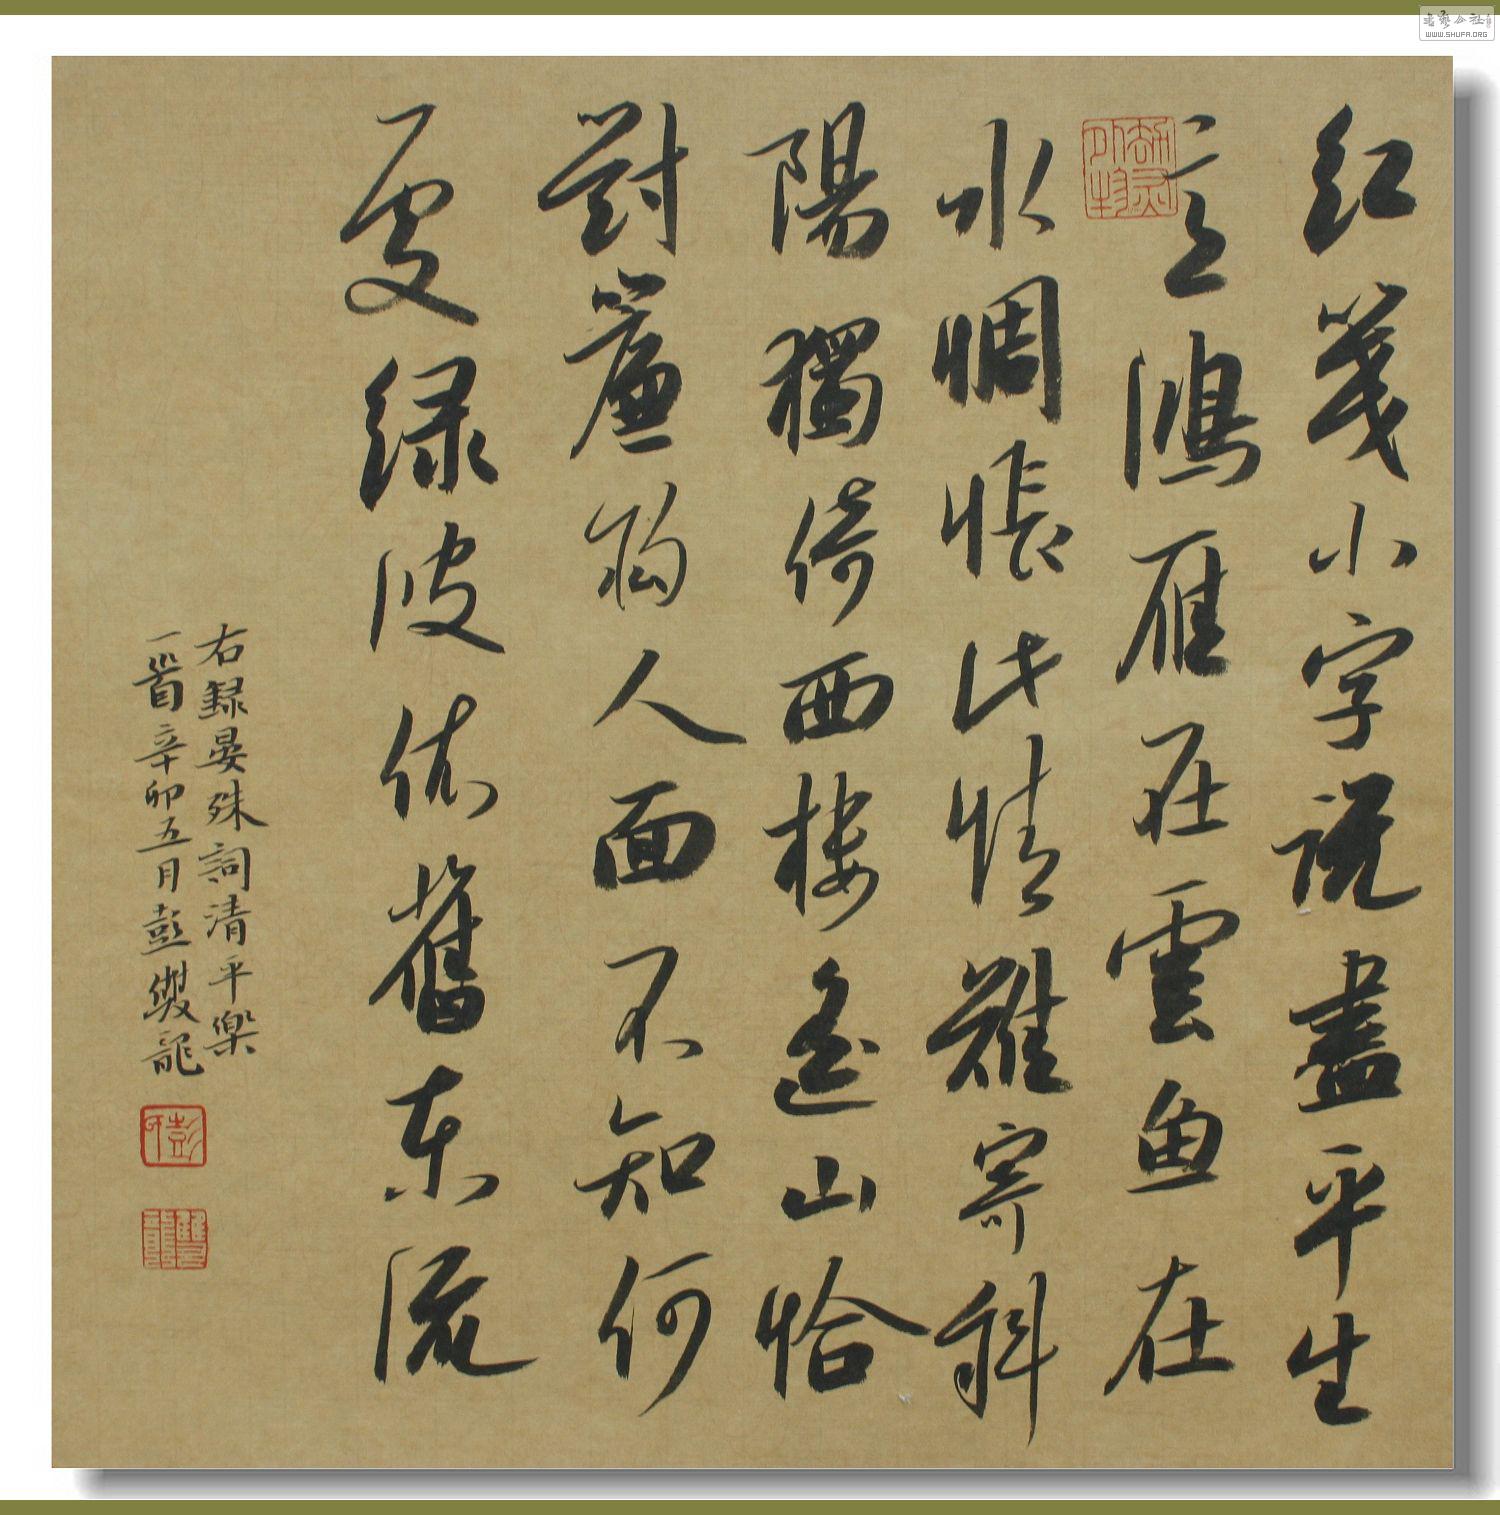 红笺小字说盡平生
意鸿雁在雲鱼在
水惆悵此情難寄斜
陽獨倚西樓遥山恰
對簾钩人面不知何
處绿波依舊东流
右録晏殊詞清平樂
一首辛卯五月彭雙龍
書藝公社
WWW.SHUFA.ORG